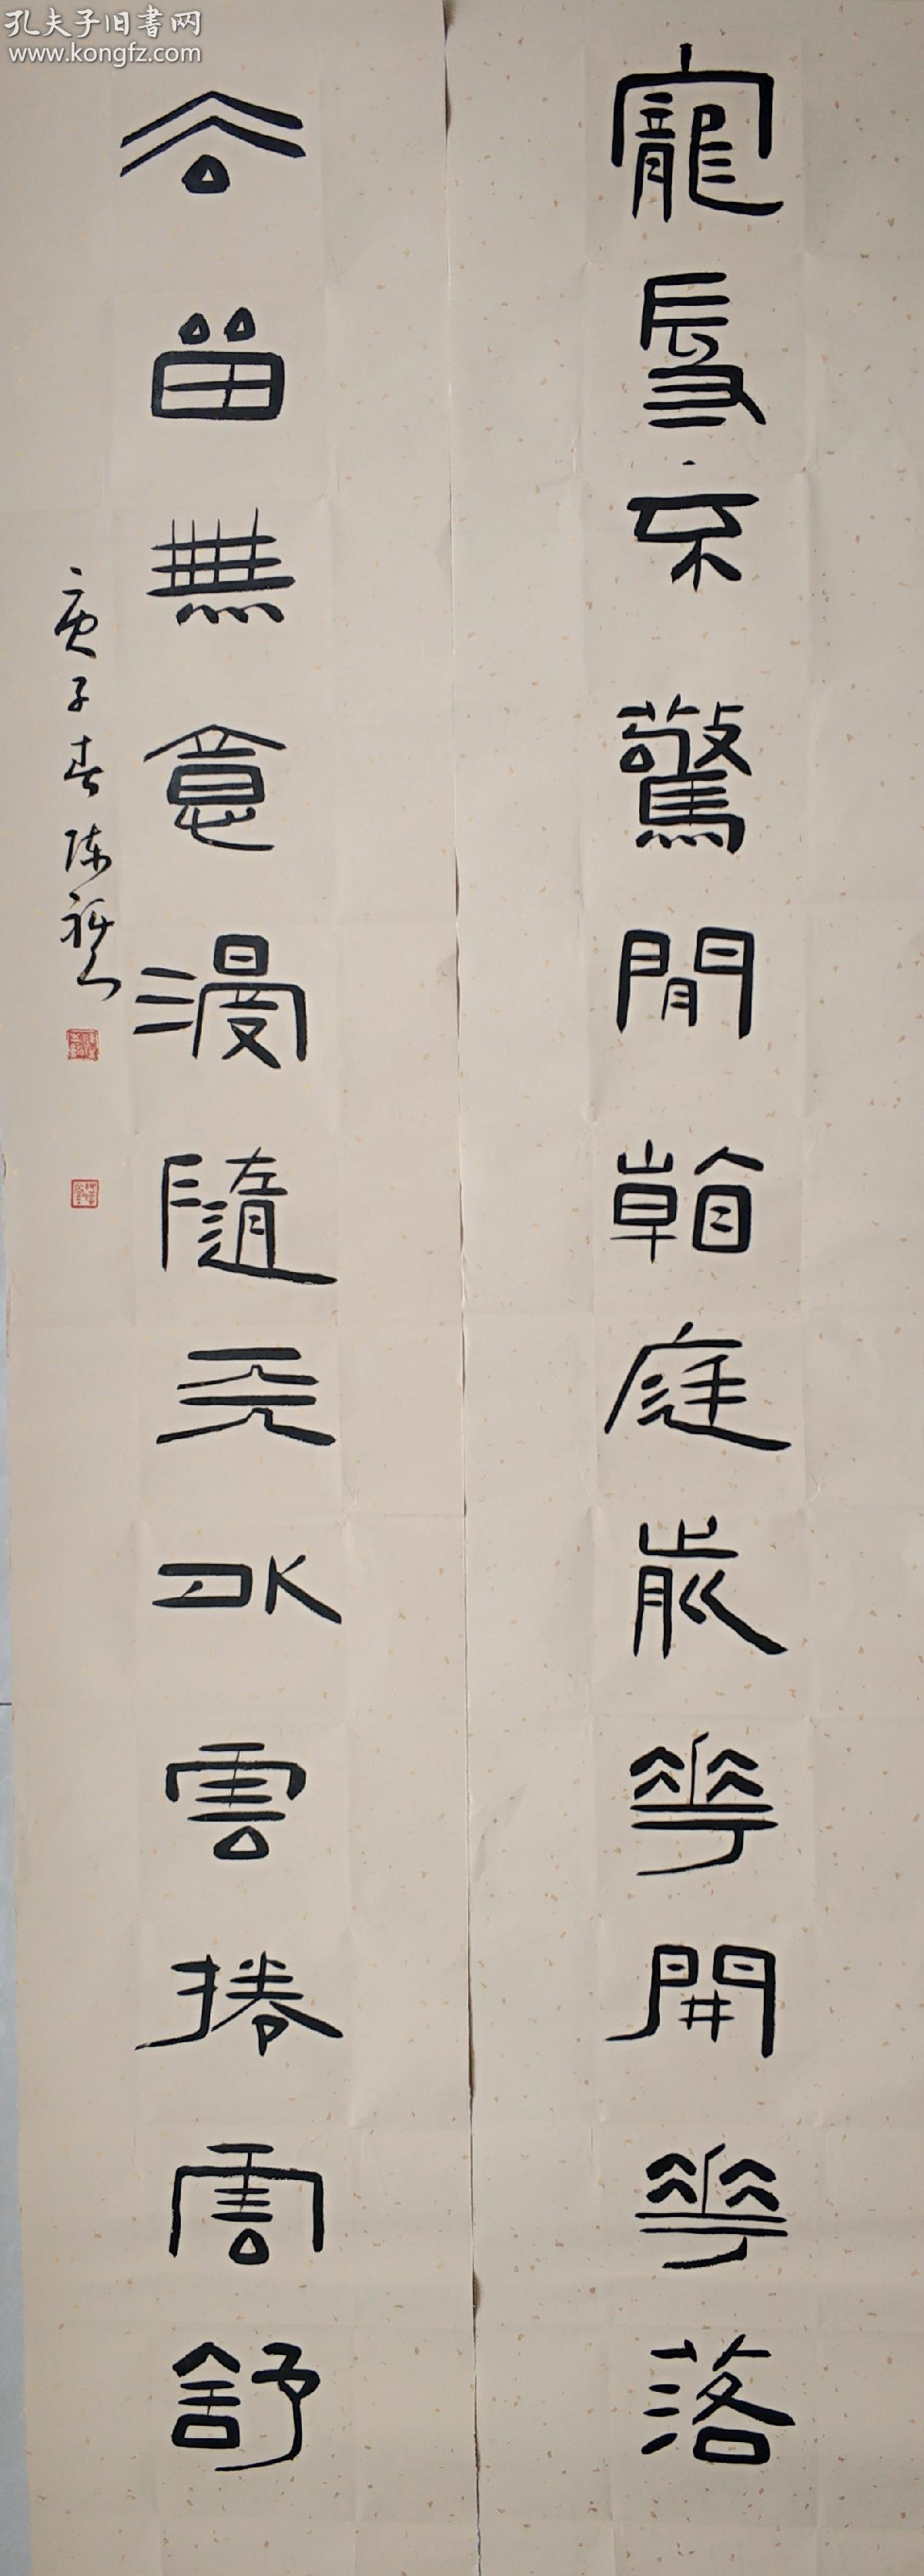 孔夫子旧书网
www.kongfz.com
寵辱不驚閒看庭前花開花落
去留無意漫隨天外雲捲雲舒
庚子春陳